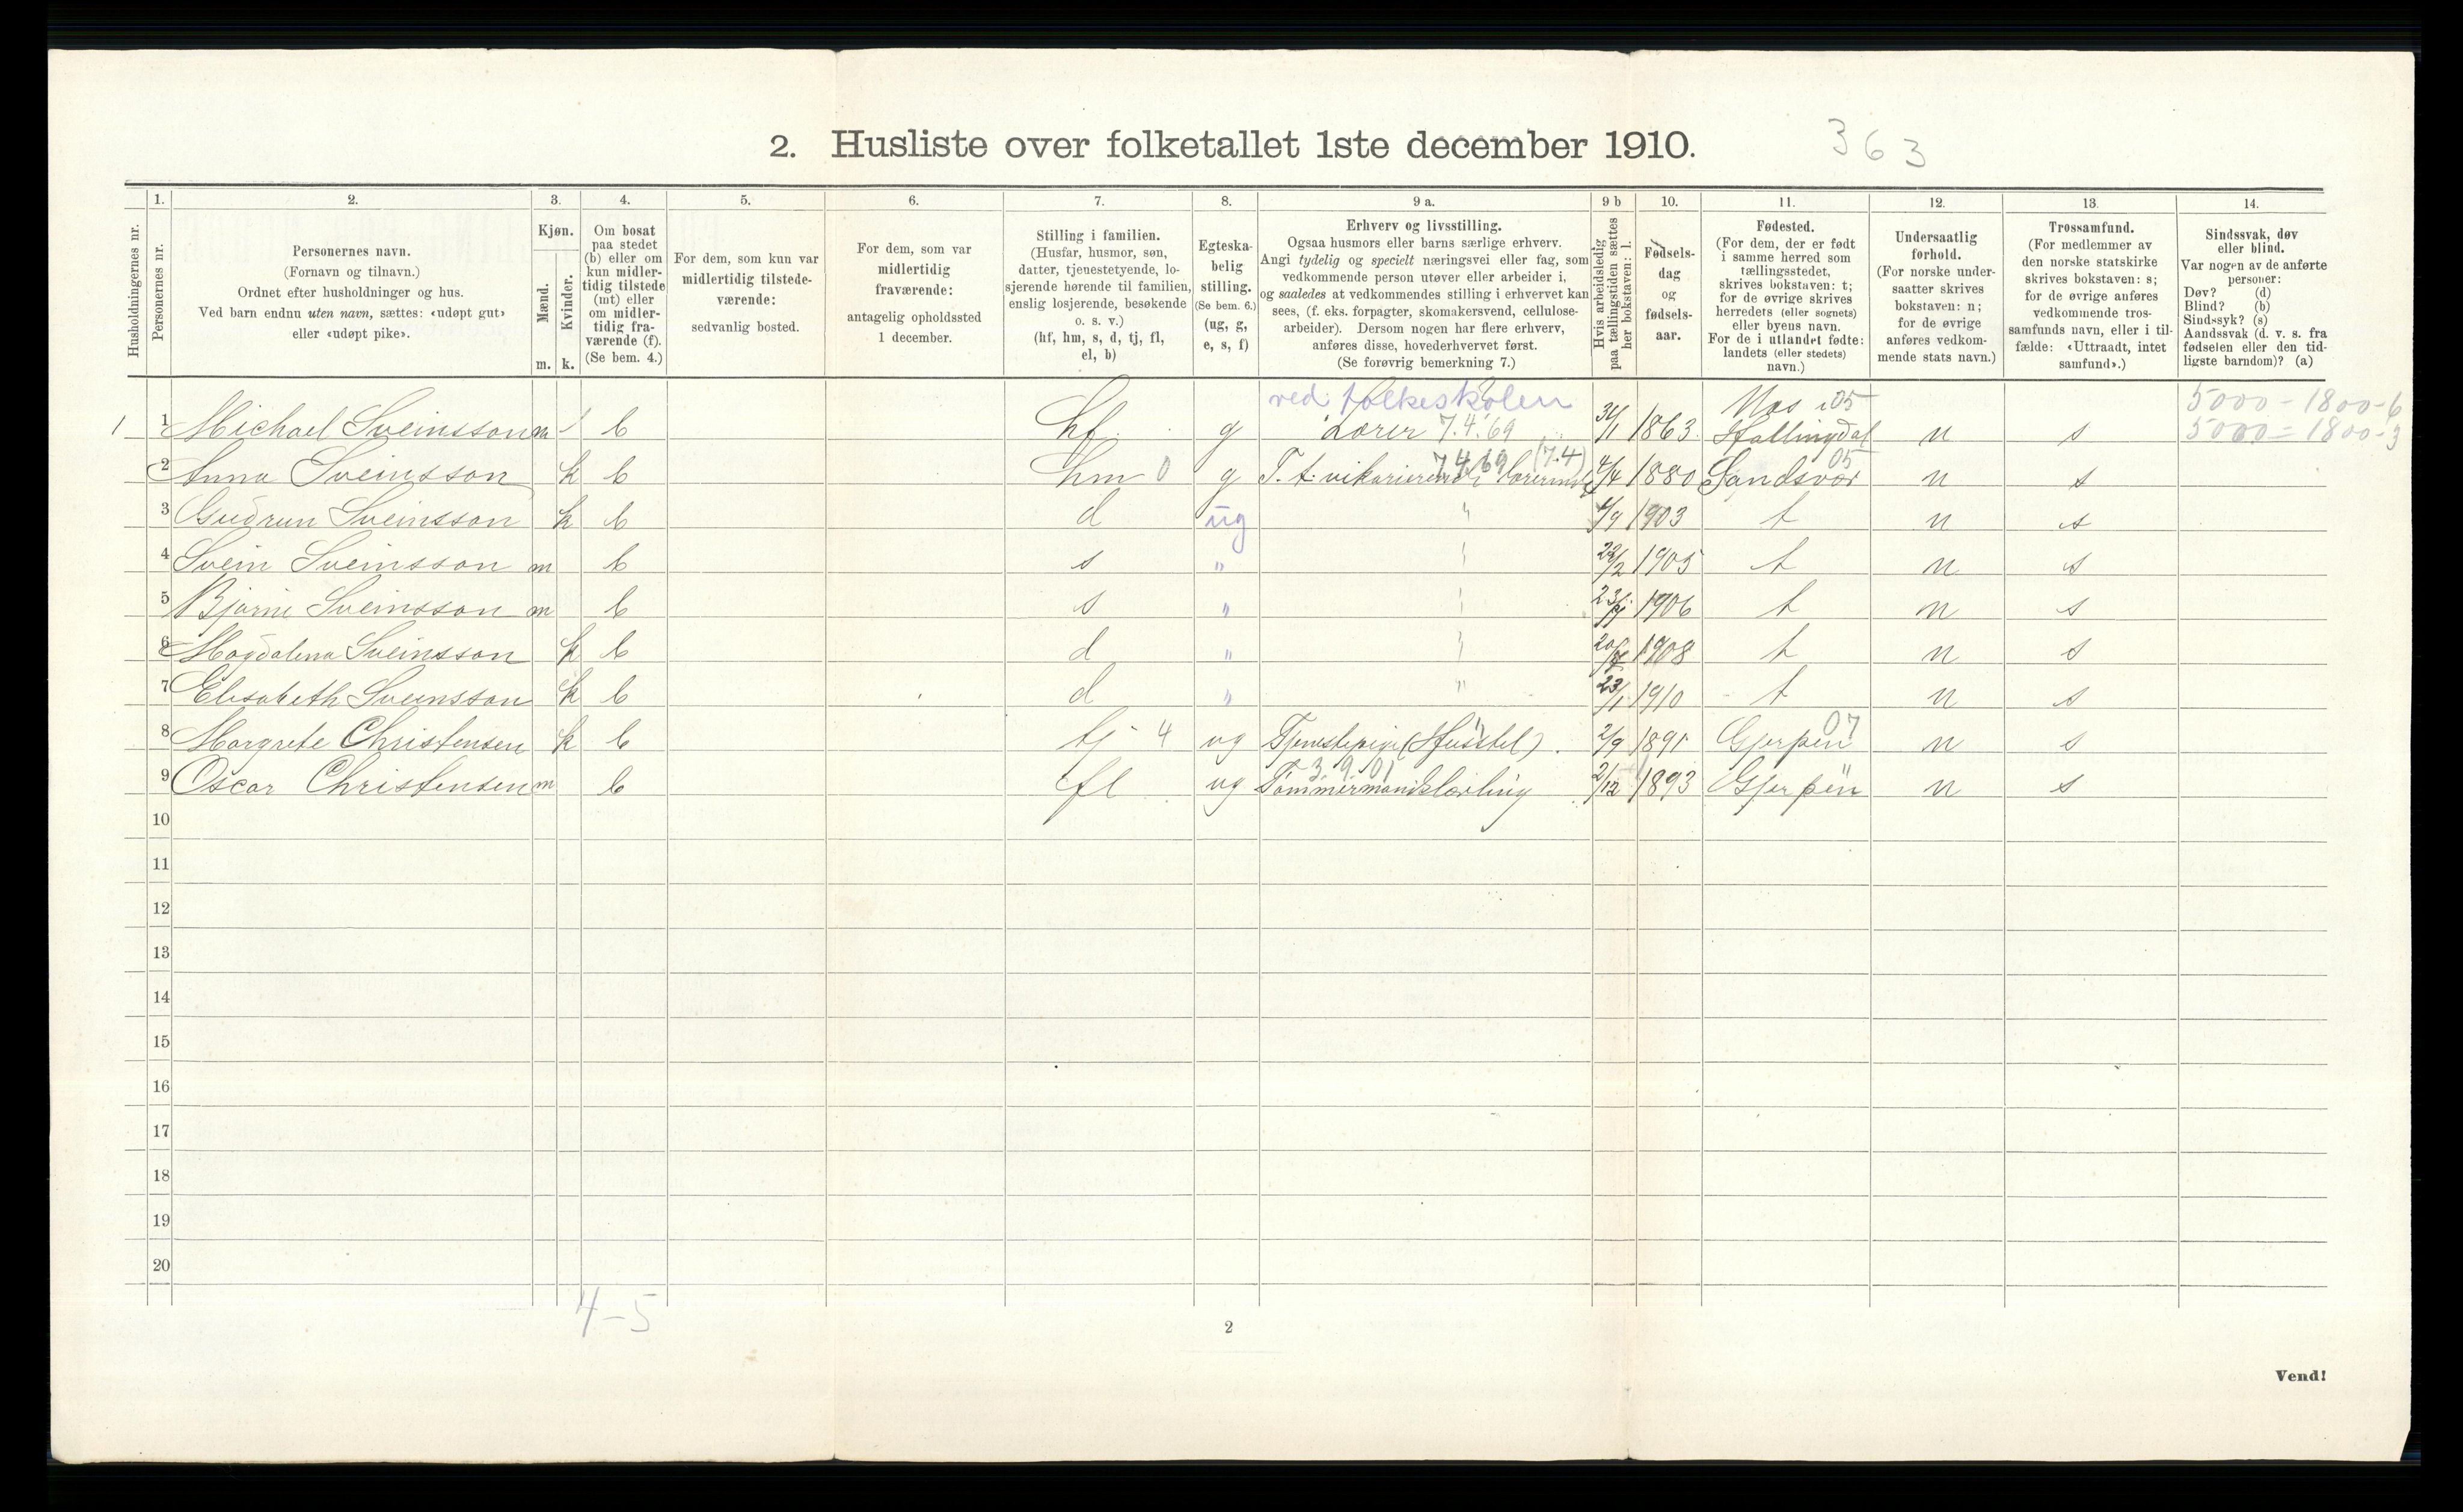 2. Husliste over folketallet 1ste december 1910.
363
Husholdningernes nr.
1.
Personernes nr.
2.
Personernes navn.
(Fornavn og tilnavn.)
Ordnet efter husholdninger og hus.
Ved barn endnu uten navn, sættes: «udøpt gut»
eller «udøpt pike».
3.
Kjøn.
Mænd.
m.
Kvinder.
k.
4.
Om bosat
paa stedet
(b) eller om
kun midler-
tidig tilstede
(mt) eller
om midler-
tidig fra-
værende (f).
(Se bem. 4.)
5.
For dem, som kun var
midlertidig tilstede-
værende:
sedvanlig bosted.
6.
For dem, som var
midlertidig
fraværende:
antagelig opholdssted
1 december.
7.
Stilling i familien.
(Husfar, husmor, søn,
datter, tjenestetyende, lo-
sjerende hørende til familien,
enslig losjerende, besøkende
o. s. v.)
(hf, hm, s, d, tj, fl,
el, b)
8.
Egteska-
belig
stilling.
(Se bem. 6.)
(ug, g,
e, s, f)
9 a.
Erhverv og livsstilling.
Ogsaa husmors eller barns særlige erhverv.
Angi tydelig og specielt næringsvei eller fag, som
vedkommende person utøver eller arbeider i,
og saaledes at vedkommendes stilling i erhvervet kan
sees, (f. eks. forpagter, skomakersvend, cellulose-
arbeider). Dersom nogen har flere erhverv,
anføres disse, hovederhvervet først.
(Se forøvrig bemerkning 7.)
9 b
Hvis arbeidsledig
paa tællingstiden sættes
her bokstaven: l.
10.
Fødsels-
dag
og
fødsels-
aar.
11.
Fødested.
(For dem, der er født
i samme herred som
tællingsstedet,
skrives bokstaven: t;
for de øvrige skrives
herredets (eller sognets)
eller byens navn.
For de i utlandet fødte:
landets (eller stedets)
navn.)
12.
Undersaatlig
forhold.
(For norske under-
saatter skrives
bokstaven: n;
for de øvrige
anføres vedkom-
mende stats navn.)
13.
Trossamfund.
(For medlemmer av
den norske statskirke
skrives bokstaven: s;
for de øvrige anføres
vedkommende tros-
samfunds navn, eller i til-
fælde: «Uttraadt, intet
samfund».)
14.
Sindssvak, døv
eller blind.
Var nogen av de anførte
personer:
Døv? (d)
Blind? (b)
Sindssyk? (s)
Aandssvak (d. v. s. fra
fødselen eller den tid-
ligste barndom)? (a)
ved folkeskolen Nes i 05 5000 - 1800-6
1 1 Michael Sveinsson m b hf g Lærer 7.4.69 1863 Hallingdal n s 5000 = 1800-3
7.4.69 (7.4) 05
2 Anna Sveinsson k b hm 0 g T. t. vikarierende lærerinde 4/4 1880 Sandsvær n s
3 Gudrun Sveinsson k b d ug " 1903 t n s
4 Svein Sveinsson m b s " " 22/2 1905 t n s
5 Bjarne Sveinsson m b s " " 1906 t n s
6 Magdalena Sveinsson k b d " " 1908 t n s
7 Elisabeth Sveinsson k b d " " 23/1 1910 t n s
07
8 Margrete Christensen k b tj 4 ug Tjenestepige (Husstel). 2/9 1891 Gjerpen n s
3.9.01
9 Oscar Christensen m b fl ug Tømmermandslærling 2/12 1893 Gjerpen n s
10
11
12
13
14
15
16
17
18
19
20
4-5
2
Vend!